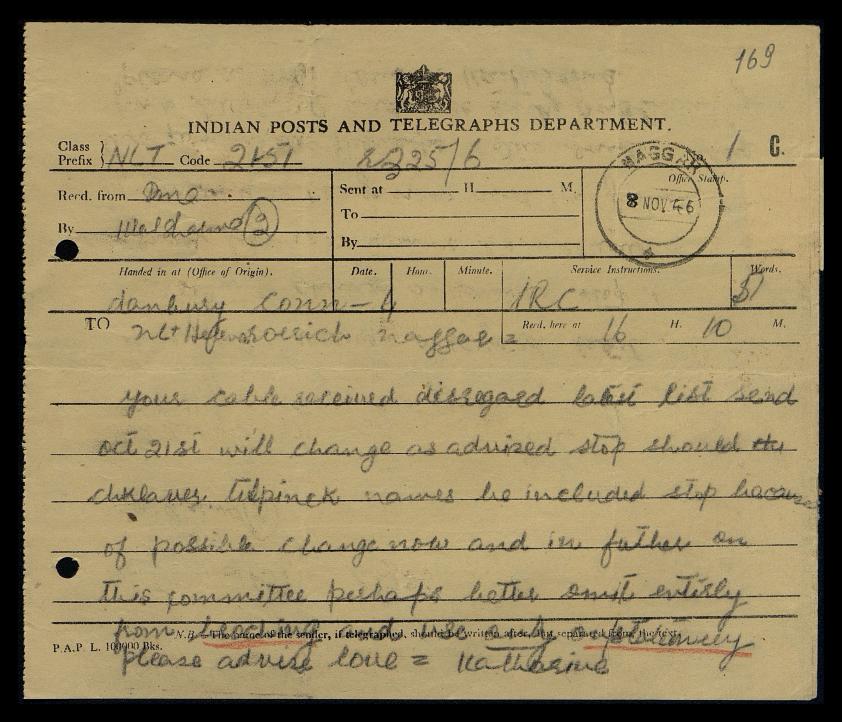 169
INDIAN POSTS AND TELEGRAPHS DEPARTMENT.
Class Prefix } NLT Code 2151 1 C.
Recd. from Sent at H. M. Office Stamp.
NAGGAR
8 NOV 46
By 2 To
By
Handed in at (Office of Origin). Date. Hour. Minute. Service Instructions. Words.
danbury conn - 4 IRC 51
TO nlt roerich naggar = Recd. here at 16 H. 10 M.
your cable received disregaed latest list send
oct 21st will change as advized stop should the
names be included stop
of possible change now and in futher on
this committee perhaps better omit entirly
from and use only
N.B.—The name of the sender, if telegraphed, should be written after, but separated from, the text.
P. A. P. L. 100000 Bks.
please advise love = Katharine